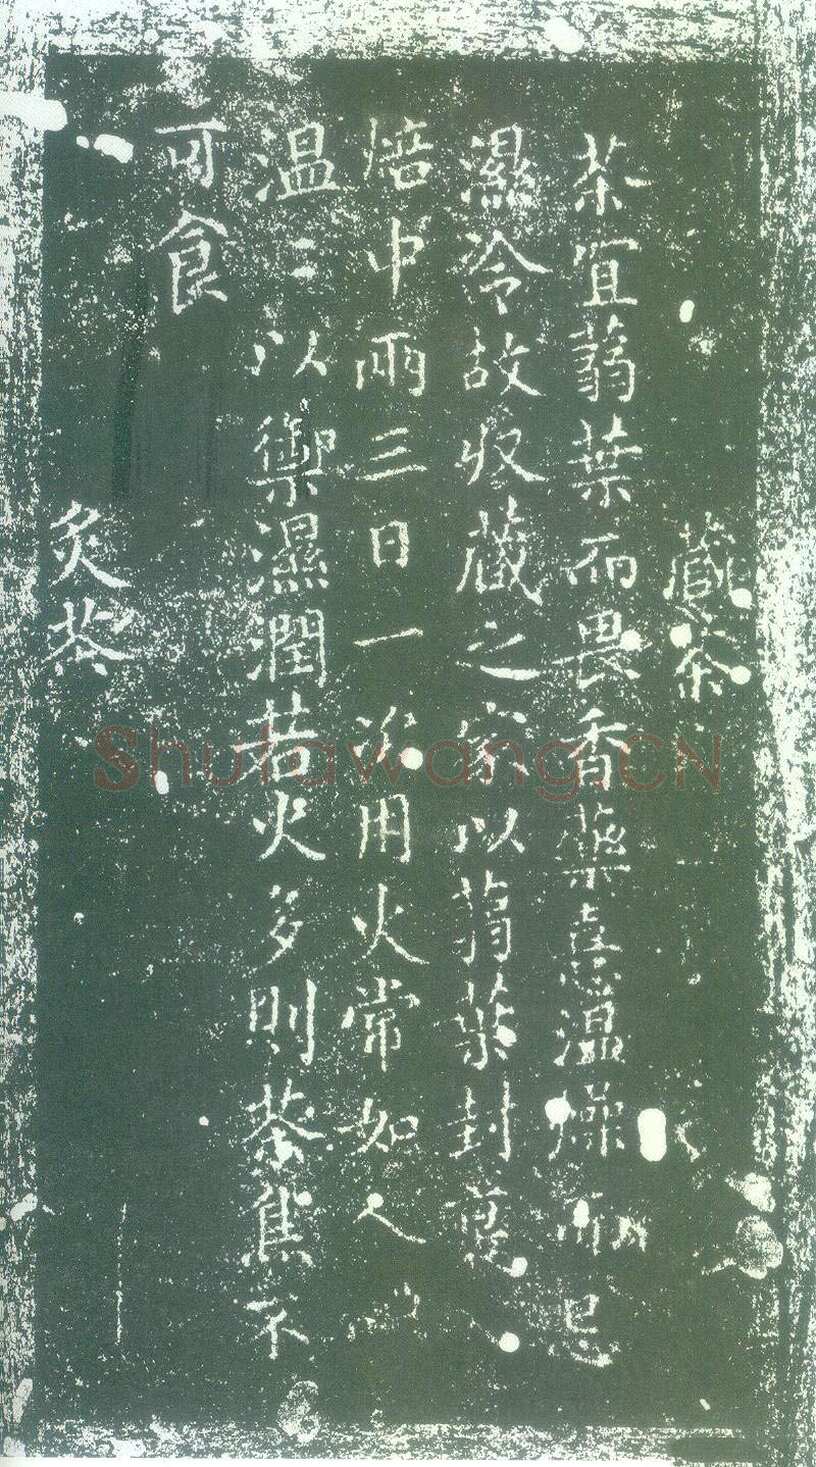 藏茶
茶宜蒻葉而畏香藥熹温燥而忌
濕冷故收藏之家以蒻葉封裹入
焙中兩三日一次用火常如人體
温〻以禦濕潤若火多則茶焦不
可食
炙茶
Shufawang.CN